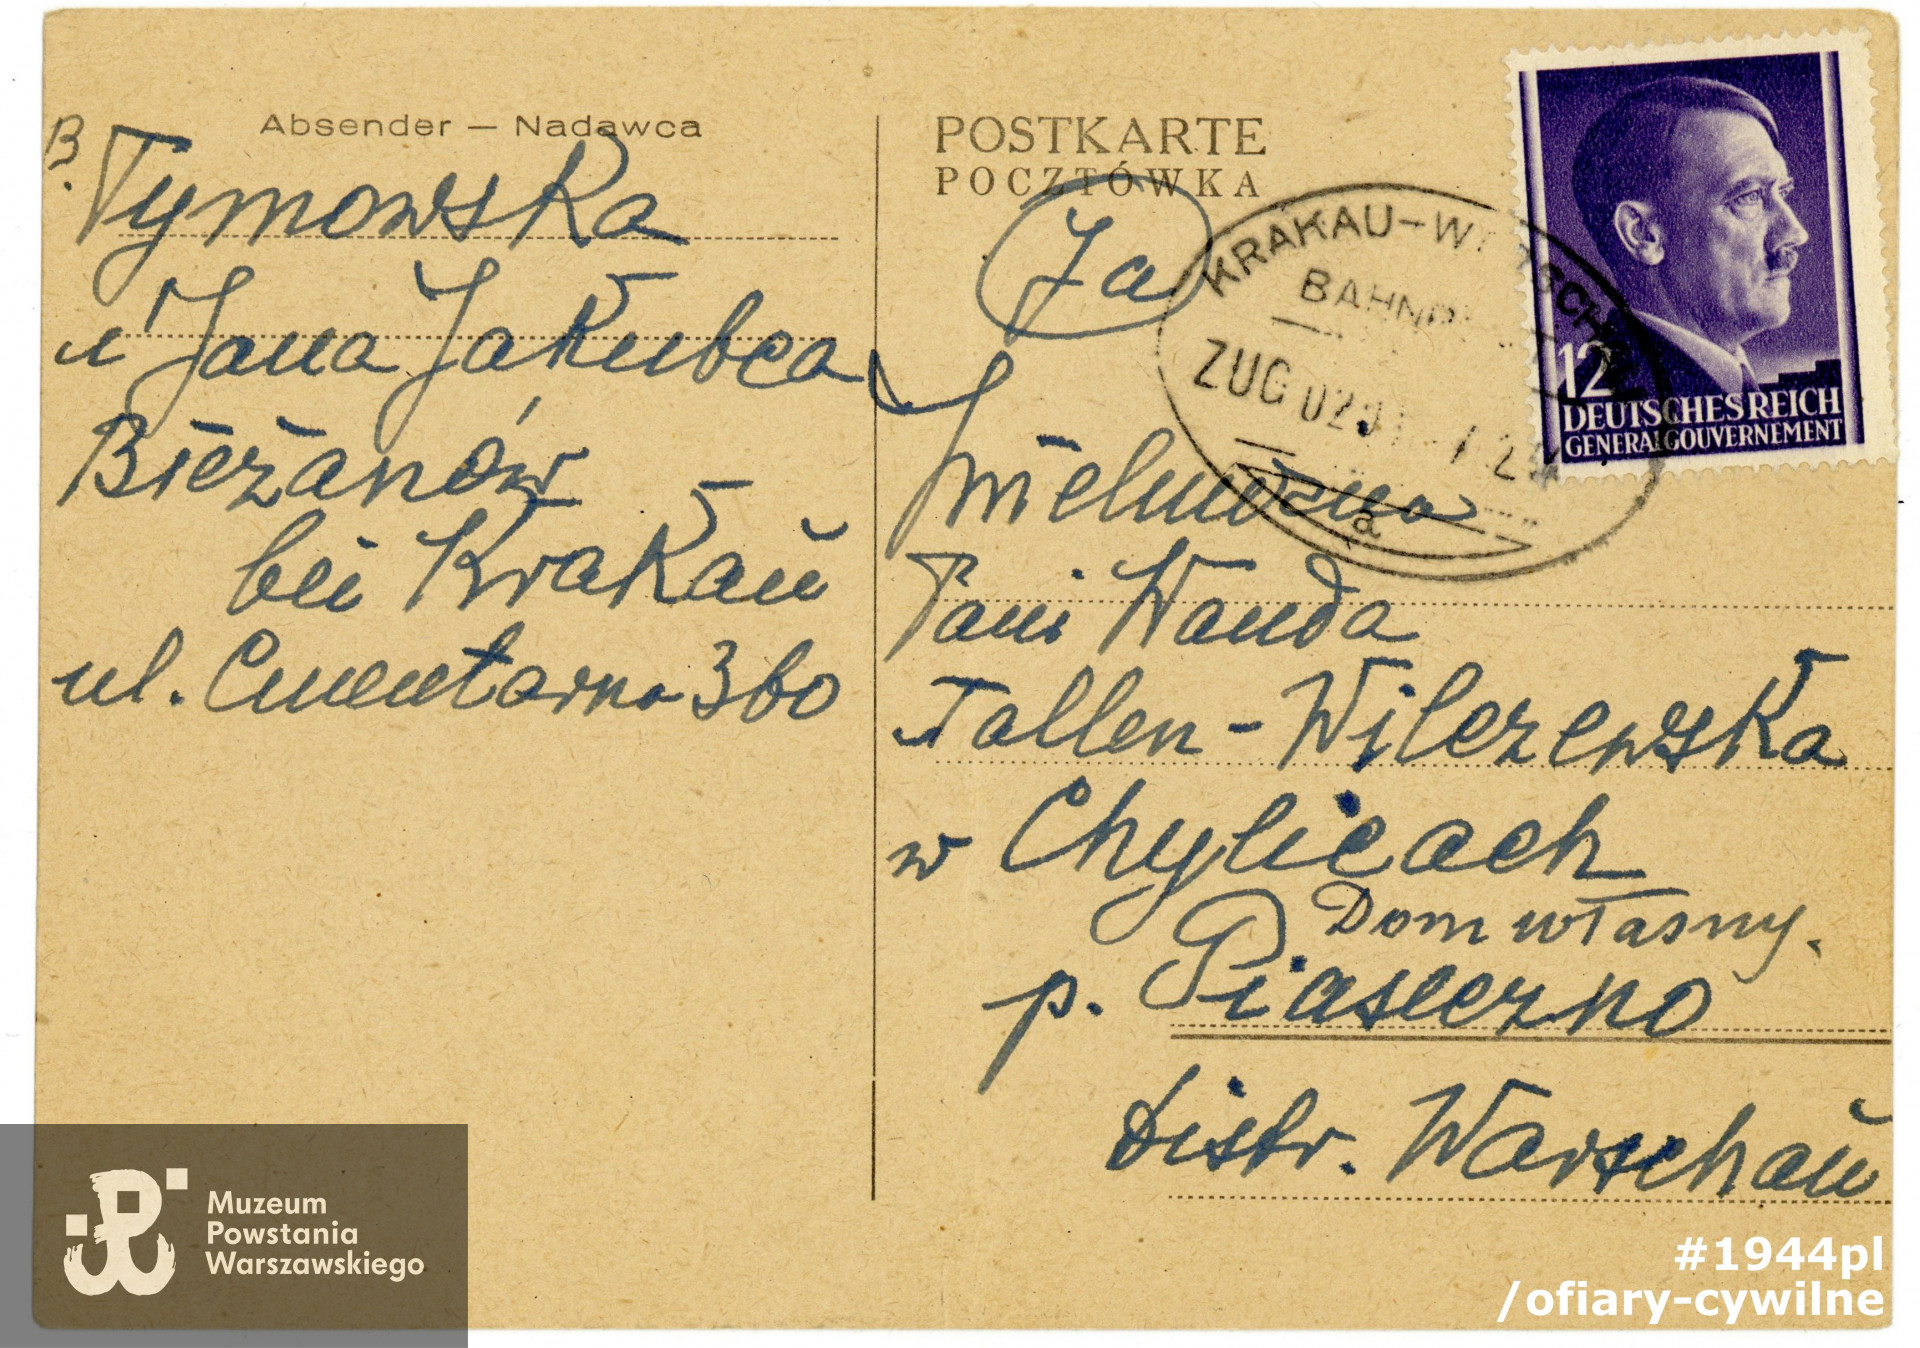 Absender — Nadawca
B. Tymowska
u Jana Jakubca
Bieżanów
bei Krakau
ul. Cmentarna 360
POSTKARTE
POCZTÓWKA
Ja
Wielmożna
Pani Wanda
Tallen-Wilczewska
w Chylicach
Dom własny.
p. Piaseczno
Distr. Warschau
KRAKAU-WARSCHAU
ZUG
a
12
DEUTSCHES REICH
GENERALGOUVERNEMENT
Muzeum
Powstania
Warszawskiego
#1944pl
/ofiary-cywilne